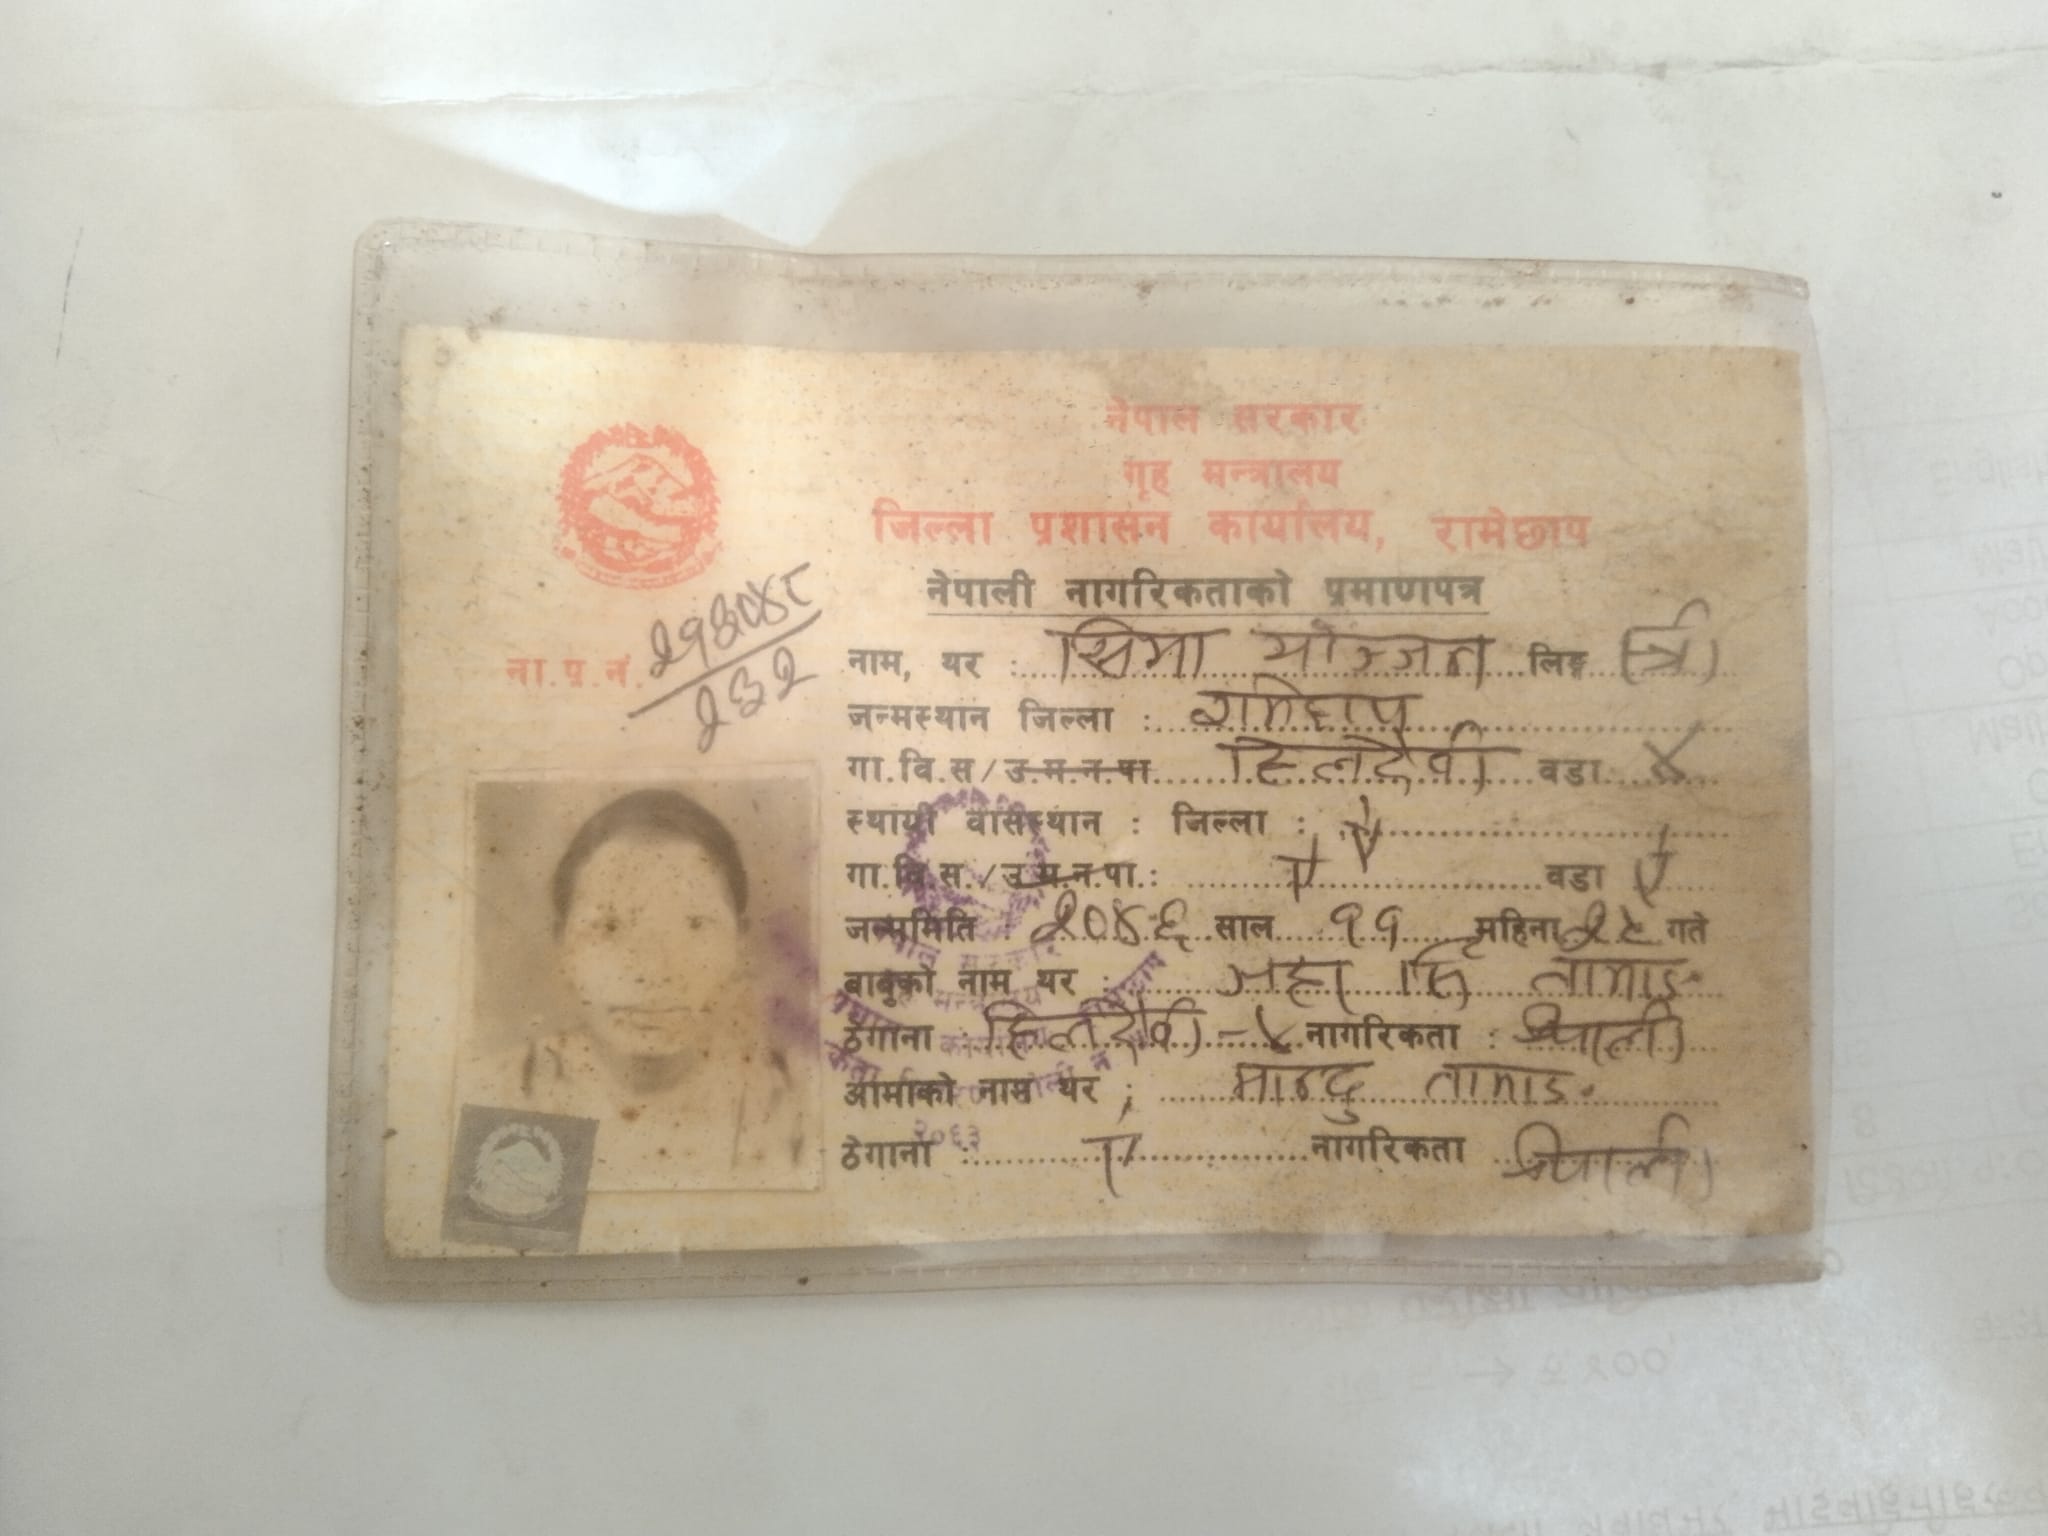 नेपाल सरकार
गृह मन्त्रालय
जिल्ला प्रशासन कार्यालय, रामेछाप
नेपाली नागरिकताको प्रमाणपत्र
ना.प.नं. २१३०४८/२३२
नाम, थर : सिमा योञ्जन लिङ्ग स्त्री
जन्मस्थान जिल्ला : रामेछाप
गा.वि.स/उ.म.न.पा. हिलदेवी वडा ४
स्थायी वासस्थान : जिल्ला : ऐ
गा.वि.स./उ.म.न.पा.: ऐ वडा ऐ
जन्ममिति : २०४६ साल ११ महिना २८ गते
बाबुको नाम थर : सिं तामाङ
ठेगाना : हिलदेवी -४ नागरिकता : नेपाली
आमाको नाम थर ; तामाङ
ठेगाना : ऐ नागरिकता नेपाली
नेपाल सरकार
२०६३